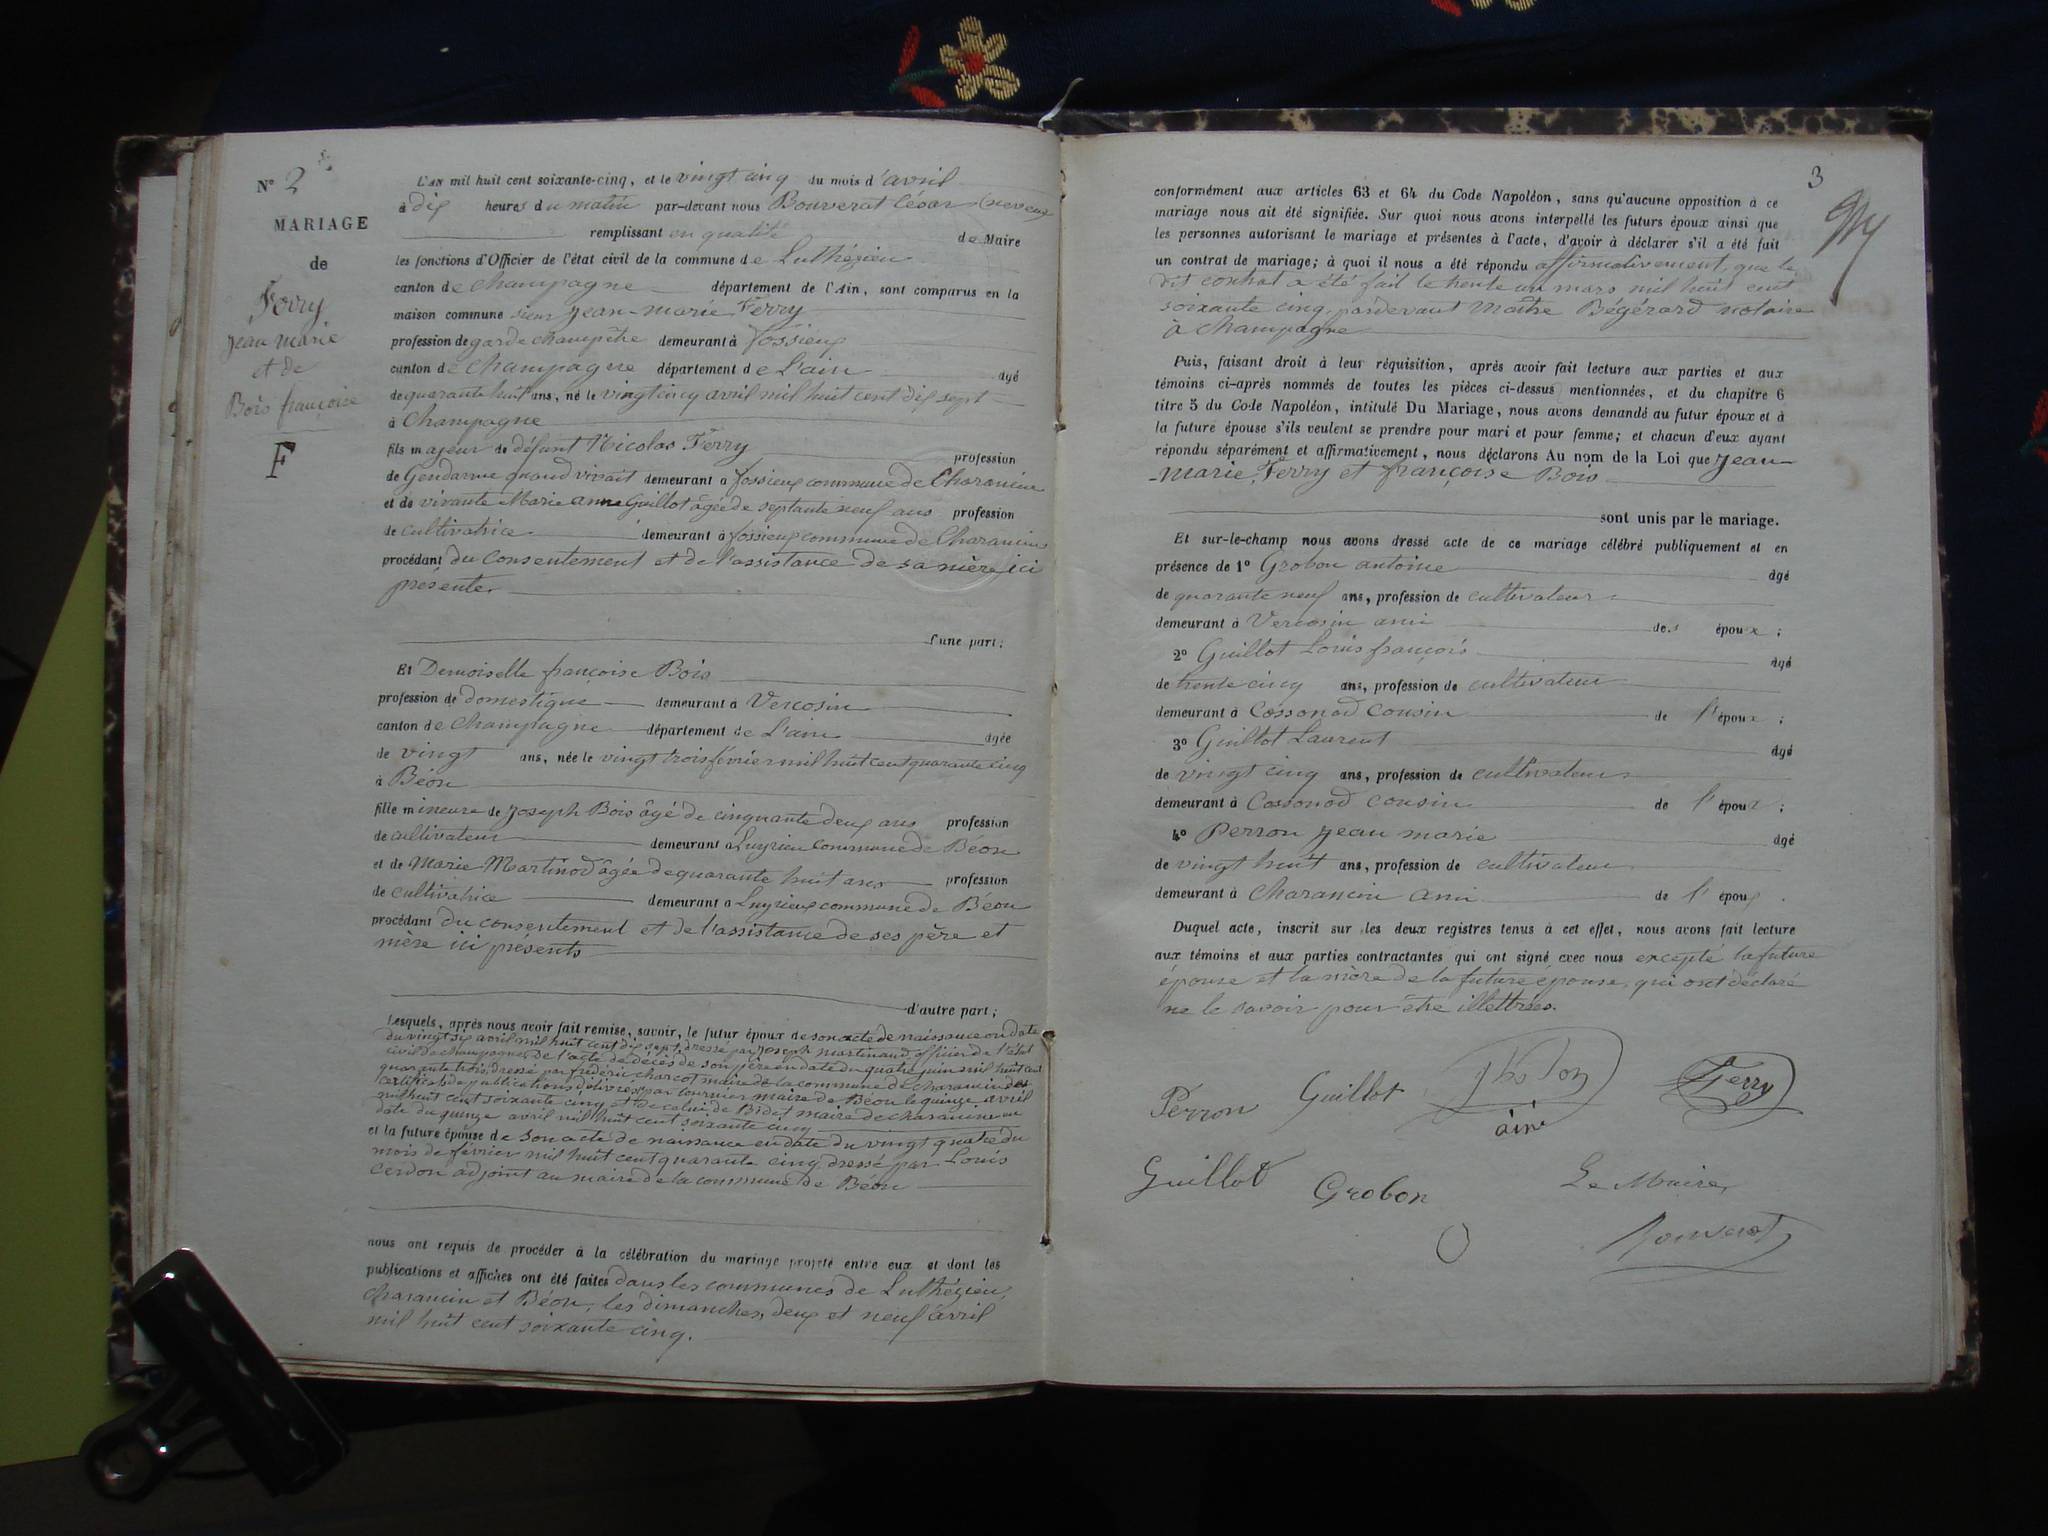 N° 2
MARIAGE
de
Ferry
jean marie
et de
Bois françoise
F
L'AN mil huit cent soixante-cinq, et le vingt cinq du mois d'avril
à dix heures du matin par-devant nous Bouverat César
remplissant en qualité de Maire
les fonctions d'Officier de l'état civil de la commune de Luthézieu
canton de Champagne département de l'Ain, sont comparus en la
maison commune sieur jean-marie Ferry
profession de garde champêtre demeurant à fossieux
canton de Champagne département de L'ain âgé
de quarante huit ans, né le vingtcinq avril mil huit cent dix sept
à Champagne
fils majeur de défunt Nicolas Ferry profession
de Gendarme quand vivait demeurant à fossieux commune de Charancin
et de vivante Marie anne Guillot âgée de septante neuf ans profession
de cultivatrice demeurant à fossieux commune de Charancin
procédant du consentement et de l'assistance de sa mère ici
présente
d'une part;
Et Demoiselle françoise Bois
profession de domestique demeurant à Vercosin
canton de Champagne département de L'ain âgée
de vingt ans, née le vingt trois février mil huit cent quarante cinq
à Béon
fille mineure de joseph Bois âgé de cinquante deux ans profession
de cultivateur demeurant à Luyrieu commune de Béon
et de Marie Martinod âgée de quarante huit ans profession
de cultivatrice demeurant à Luyrieux commune de Béon
procédant du consentement et de l'assistance de ses père et
mère ici présents
d'autre part;
Lesquels, après nous avoir fait remise, savoir, le futur époux de son acte de naissance en date
du vingt six avril mil huit cent dix sept, dressé par joseph martinand officier de l'état
civil de champagne, de l'acte de décès de son père en date du quatre juin mil huit cent
quarante trois, dressé par frédéric charcot maire de la commune de charancin des
certificats de publications délivrés par tournier maire de Béon le quinze avril
mil huit cent soixante cinq et de celui de Bidet maire de charancin en
date du quinze avril mil huit cent soixante cinq
et la future épouse de son acte de naissance en date du vingt quatre du
mois de février mil huit cent quarante cinq dressé par Louis
Cerdon adjoint au maire de la commune de Béon
nous ont requis de procéder à la célébration du mariage projeté entre eux et dont les
publications et affiches ont été faites dans les communes de Luthézieu,
Charancin et Béon, les dimanches, deux et neuf avril
mil huit cent soixante cinq.
3
conformément aux articles 63 et 64 du Code Napoléon, sans qu'aucune opposition à ce
mariage nous ait été signifiée. Sur quoi nous avons interpellé les futurs époux ainsi que
les personnes autorisant le mariage et présentes à l'acte, d'avoir à déclarer s'il a été fait
un contrat de mariage; à quoi il nous a été répondu affirmativement, que le
dit contrat a été fait le trente un mars mil huit cent
soixante cinq, pardevant Maître Bégérard notaire
à Champagne
Puis, faisant droit à leur réquisition, après avoir fait lecture aux parties et aux
témoins ci-après nommés de toutes les pièces ci-dessus mentionnées, et du chapitre 6
titre 5 du Code Napoléon, intitulé Du Mariage, nous avons demandé au futur époux et à
la future épouse s'ils veulent se prendre pour mari et pour femme; et chacun d'eux ayant
répondu séparément et affirmativement, nous déclarons Au nom de la Loi que jean-
marie, Ferry et françoise Bois
sont unis par le mariage.
Et sur-le-champ nous avons dressé acte de ce mariage célébré publiquement et en
présence de 1° Grobon antoine âgé
de quarante neuf ans, profession de cultivateur
demeurant à Vercosin ami des époux;
2° Guillot Louis françois âgé
de trente cinq ans, profession de cultivateur
demeurant à Cossonod cousin de l'époux;
3° Guillot Laurent âgé
de vingt cinq ans, profession de cultivateur
demeurant à Cossonod cousin de l'époux;
4° Perron jean marie âgé
de vingt huit ans, profession de cultivateur
demeurant à Charancin ami de l'époux.
Duquel acte, inscrit sur les deux registres tenus à cet effet, nous avons fait lecture
aux témoins et aux parties contractantes qui ont signé avec nous excepté la future
épouse et la mère de la future épouse, qui ont déclaré
ne le savoir pour être illettrées.
Perron Guillot Ferry
ainé
Guillot Grobon Le Maire,
Bouverat